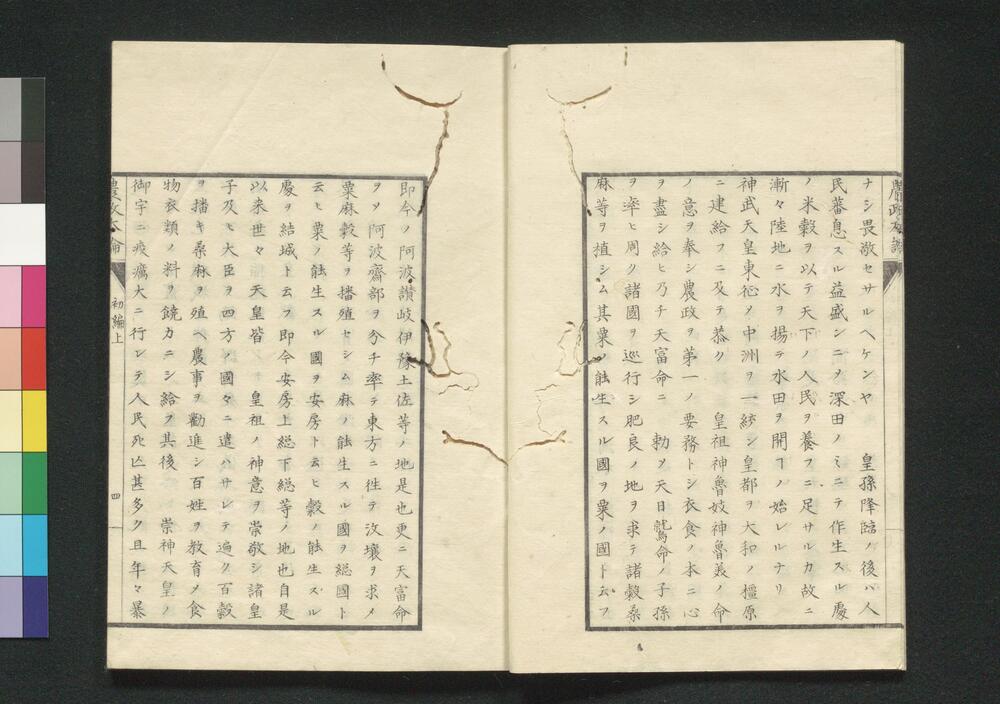 ナシ畏敬セサルヘケンヤ　皇孫降臨ノ後ハ人
民蕃息スル益盛ンニヲ深田ノミニテ作生スル處
ノ米穀ヲ以テ天下ノ人民ヲ養フニ足サルカ故ニ
漸々陸地ニ水ヲ揚テ水田ヲ開ヿノ始レルナリ
神武天皇東征ノ中洲ヲ一統シ皇都ヲ大和ノ橿原
ニ建給フニ及テ恭ク　皇祖神魯妓神魯美ノ命
ノ意ヲ奉シ農政ヲ第一ノ要務トシ衣食ノ本ニ心
ヲ盡シ給ヒ乃チ天富命ニ　勅ヲ天日鷲命ノ子孫
ヲ率ヒ周ク諸國ヲ巡行シ肥良ノ地ヲ求テ諸穀桑
麻等ヲ植シム其粟ノ能生スル國ヲ粟ノ國ト云フ
即今ノ阿波讃岐伊豫土佐等ノ地是也更ニ天富命
ヲヲ阿波齋部ヲ分チ率テ東方ニ徃テ沃壤ヲ求メ
粟麻穀等ヲ播殖セシム麻ノ能生スル國ヲ総國ト
云ヒ粟ノ能生スル國ヲ安房ト云ヒ穀ノ能生スル
處ヲ結城ト云フ即今安房上総下総等ノ地也自是
以来世々　天皇皆　皇祖ノ神意ヲ崇敬シ諸皇
子及ヒ大臣ヲ四方ノ國々ニ遣ハサレテ遍ク百穀
ヲ播キ桑麻ヲ殖ヘ農事ヲ勸進シ百姓ヲ教育メ食
物衣類ノ料ヲ饒カニシ給フ其後　崇神天皇ノ
御宇ニ疫癘大ニ行レテ人民死亡甚多ク且年々暴
初編上
四